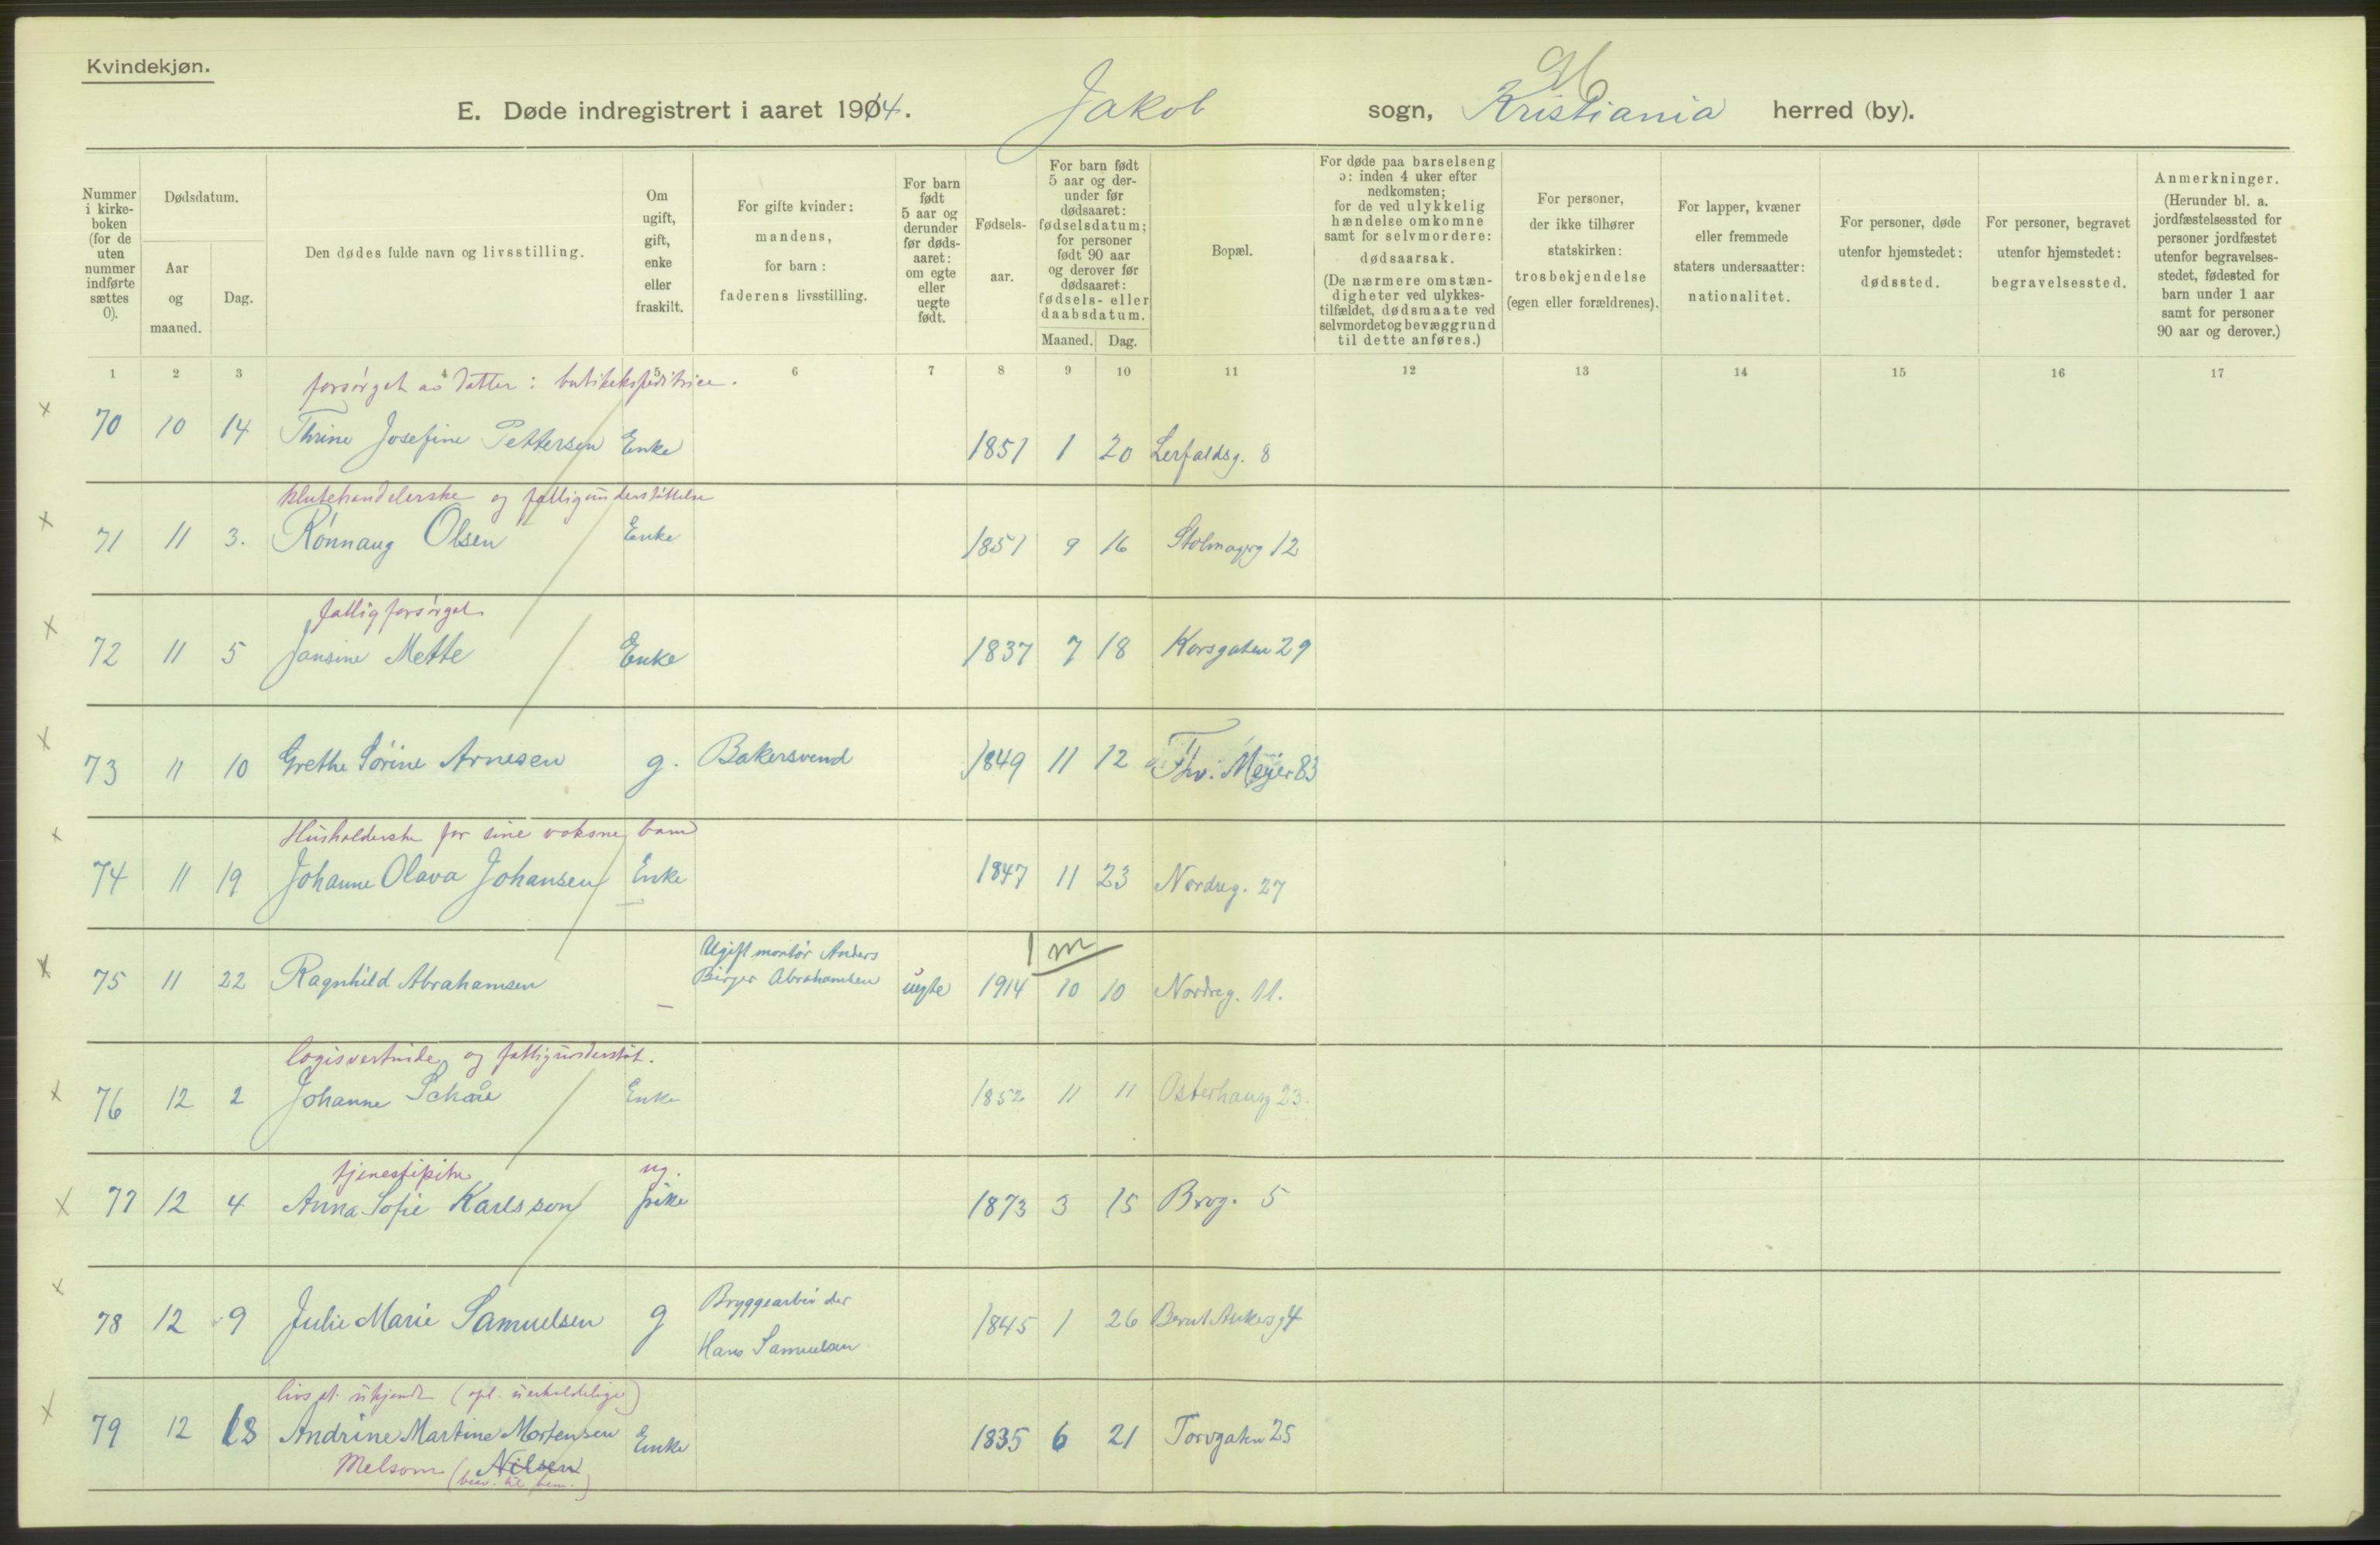 Kvindekjøn.
E. Døde indregistrert i aaret 1914. Jakob sogn, Kristiania herred (by).
Nummer i kirke-boken (for de uten nummer indførte sættes 0).
Dødsdatum.
Aar og maaned.
Dag.
Den dødes fulde navn og livsstilling.
Om ugift, gift, enke eller fraskilt.
For gifte kvinder: mandens, for barn: faderens livsstilling.
For barn født 5 aar og derunder før døds-aaret: om egte eller uegte født.
Fødsels-aar.
For barn født 5 aar og der-under før dødsaaret: fødselsdatum; for personer født 90 aar og derover før dødsaaret: fødsels- eller daabsdatum.
Maaned. Dag.
Bopæl.
For døde paa barselseng ɔ: inden 4 uker efter nedkomsten; for de ved ulykkelig hændelse omkomne samt for selvmordere: dødsaarsak. (De nærmere omstæn-digheter ved ulykkes-tilfældet, dødsmaate ved selvmordet og bevæggrund til dette anføres.)
For personer, der ikke tilhører statskirken: trosbekjendelse (egen eller forældrenes).
For lapper, kvæner eller fremmede staters undersaatter: nationalitet.
For personer, døde utenfor hjemstedet: dødssted.
For personer, begravet utenfor hjemstedet: begravelsessted.
Anmerkninger. (Herunder bl. a. jordfæstelsessted for personer jordfæstet utenfor begravelses-stedet, fødested for barn under 1 aar samt for personer 90 aar og derover.)
1 2 3 4 5 6 7 8 9 10 11 12 13 14 15 16 17
forsørget av datter: butikekspeditrice.
x 70 10 14 Thrine Josefine Pettersen Enke 1851 1 20 Lerfaldsg. 8
klutehandelerske og fattigunderstøttelse
x 71 11 3. Rønnaug Olsen Enke 1851 9 16 Stolmagerg 12
fattigforsørget
x 72 11 5 Jansine Mette Enke 1837 7 18 Korsgaten 29
x 73 11 10 Grethe Sørine Arnesen g. Bakersvend 1849 11 12 Thv. Meyer 83
Husholderske for sine voksne barn
x 74 11 19 Johanne Olava Johansen Enke 1847 11 23 Nordreg. 27
1 m
Ugift montør Anders
x 75 11 22 Ragnhild Abrahamsen — Birger Abrahamsen uegte 1914 10 10 Nordreg. 11.
logisvertinde og fattigunderstøt.
x 76 12 2 Johanne Enke 1852 11 11 Osterhausg 23.
tjenestepike ug.
x 77 12 4 Anna Sofie Karlsson pike 1873 3 15 Brog. 5
Bryggearbeider
x 78 12 9 Julie Marie Samuelsen g 1845 1 26 Bernt Ankersg 4
Hans Samuelsen
livsst. ukjendt (opl. uerholdelige)
x 79 12 18 Andrine Martine Mortensen Enke 1835 6 21 Torvgaten 25
Melsom Nilsen